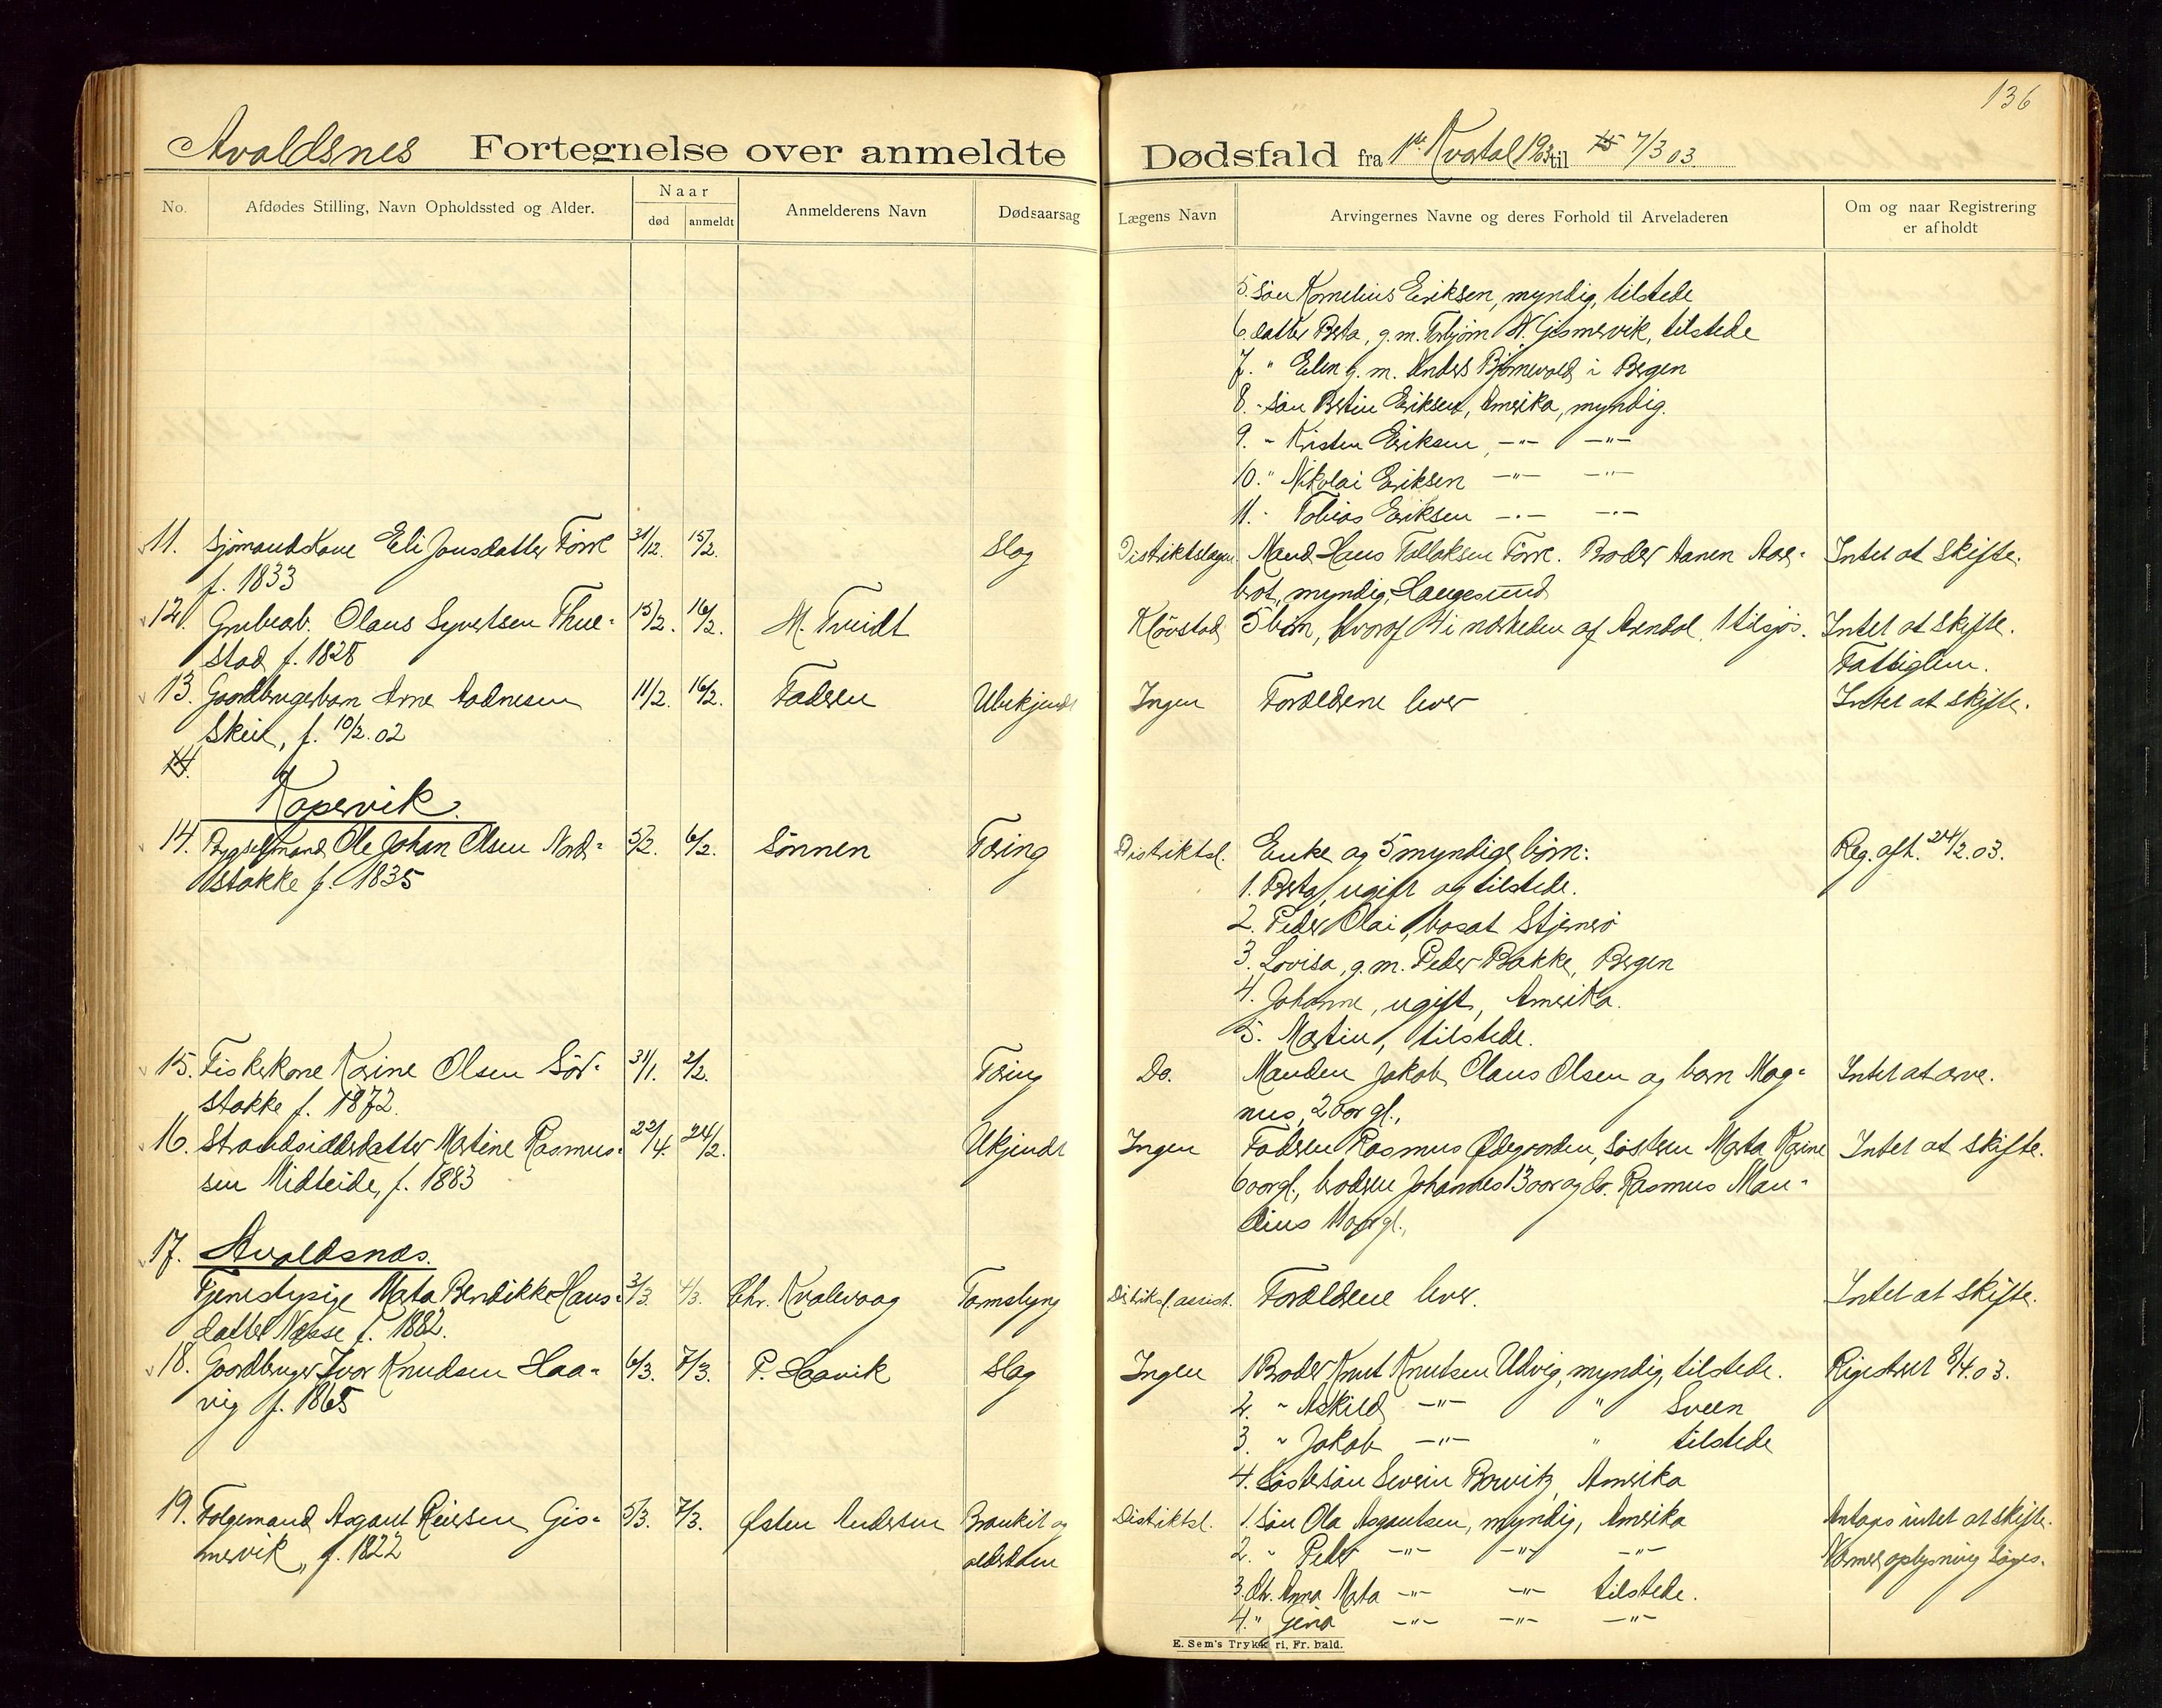 136
Avaldsnes Fortegnelse over anmeldte Dødsfald fra 1ste Kvartal 1903 til 7/3 03.
No. Afdødes Stilling, Navn Opholdssted og Alder. Naar død anmeldt Anmelderens Navn Dødsaarsag Lægens Navn Arvingernes Navne og deres Forhold til Arveladeren Om og naar Registrering er afholdt
5. søn Kornelius Eriksen, myndig, tilstede
6. datter Berta, g. m. Torbjørn N. Gismervik, tilstede
7. " Elen g. m. Anders Bjørnevold i Bergen
8. - søn Bertin Eriksen, Amerika, myndig.
9. " Kristen Eriksen, -"- -"-
10. " Nikolai Eriksen -"- -"-
11. " Tobias Eriksen -"- -"-
11. Sjømandskone Eli Jonsdatter Førre 31/12. 15/2. Slag Distriktslægen Mand Hans Tollaksen Førre. Broder Aanen Aare-
f. 1833 brot, myndig, Haugesund Intet at skifte.
12. Grubearb. Olaus Syvertsen Thue- 15/2. 16/2. M. Tveidt Kløvstad 5 børn, hvoraf 4 i nærheden af Arendal, 1 tilsjøs. Intet at skifte.
stad f. 1828 Fattiglem.
13. Gaardbrugerbarn Arne Aadnesen 11/2. 16/2. Faderen Ubekjendt Ingen Forældrene lever Intet at skifte.
Skeie, f. 10/2. 02
14.
Kopervik.
14. Bygselmand Ole Johan Olsen Nord- 5/2. 6/2. Sønnen Tæring Distriktsl. Enke og 5 myndige børn: Reg. afh. 24/2. 03.
stokke f. 1835 1. Berta, ugift og tilstede.
2. Peder Olai, bosat Stjernerø
3. Lovisa, g. m. Peder Bakke, Bergen
4. Johanne, ugift, Amerika.
5. Martin, tilstede.
15. Fiskerkone Karine Olsen Sør- 31/1. 2/2. Tæring Do. Manden Jakob Olaus Olsen og barn Mag- Intet at arve.
stokke f. 1872. nus, 2 aar gl.,
16. Strandsidderdatter Martine Rasmus- 22/4. 24/2. Ukjendt Ingen Faderen Rasmus Ødegaarden, søsteren Marta Karine Intet at skifte.
sen Midteide, f. 1883 6 aar gl., brodren Johannes 13 aar og do. Rasmus Man-
dius 11 aar gl.,
17. Avaldsnæs.
Tjenestepige Marta Bendikke Hans- 3/3. 4/3. Chr. Kvalevaag Tarmslyng Distriktsl. assist. Forældrene lever. Intet at skifte.
datter Næsse f. 1882.
18. Gaardbruger Ivar Knudsen Haa- 6/3. 7/3. P. Haavik Slag Ingen 1 Broder Knut Knutsen Udvig, myndig, tilstede. Registrert 8/4. 03.
vig f. 1865 2. " Askild -"- " Sveen
3. " Jakob -"- " tilstede
4. Søstersøn Severin Borvik, Amerika
19. Følgemand Asgaut Reiersen Gis- 5/3. 7/3. Østen Andersen Bronkit og Distriktsl. 1. Søn Ola Asgautsen, myndig, Amerika Antages intet at skifte.
mervik, f. 1822 alderdom 2. " Peder -"- -"- -"- Nærmere oplysning søges.
3. dtr. Anna Marta -"- -"- tilstede.
4. " Gina -"- -"- -"-
E. Sem's Trykkeri, Fr.hald.